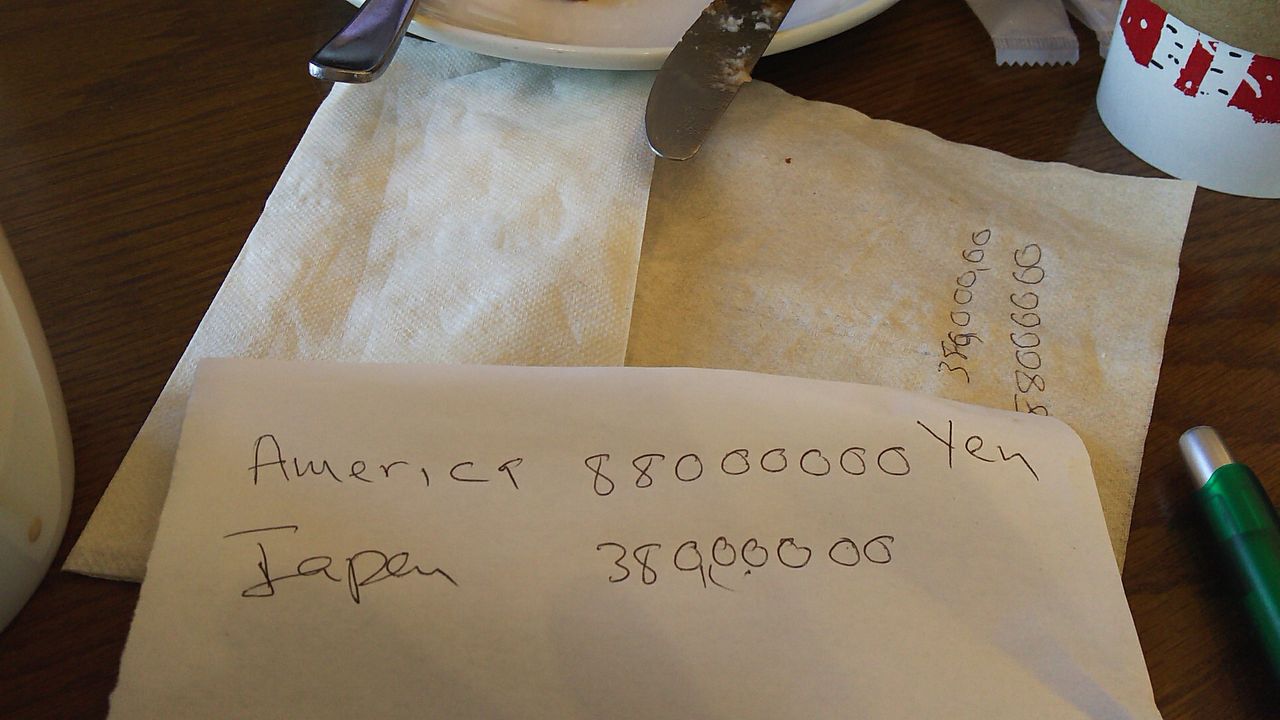 380,000,00
America 88000000 Yen
Japan 380,00000